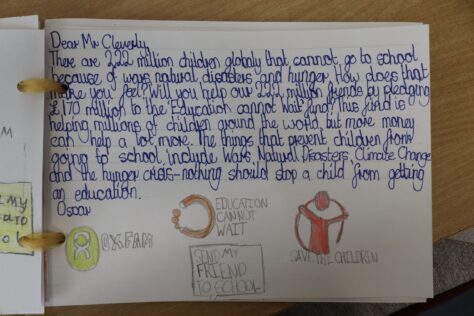 Dear Mr Cleverly,
There are 222 million children globally that cannot go to school
because of wars, natural disasters and hunger. How does that
make you feel? Will you help our 222 million friends by pledging
£170 million to the Education cannot wait fund? This fund is
helping millions of children around the world, but more money
can help a lot more. The things that prevent children from
going to school include Wars, Natural Disasters, Climate Change
and the hunger crisis-nothing should stop a child from getting
an education.
Oscar
OXFAM
EDUCATION
CANNOT
WAIT
SEND MY
FRIEND
TO SCHOOL
SAVE THE CHILDREN